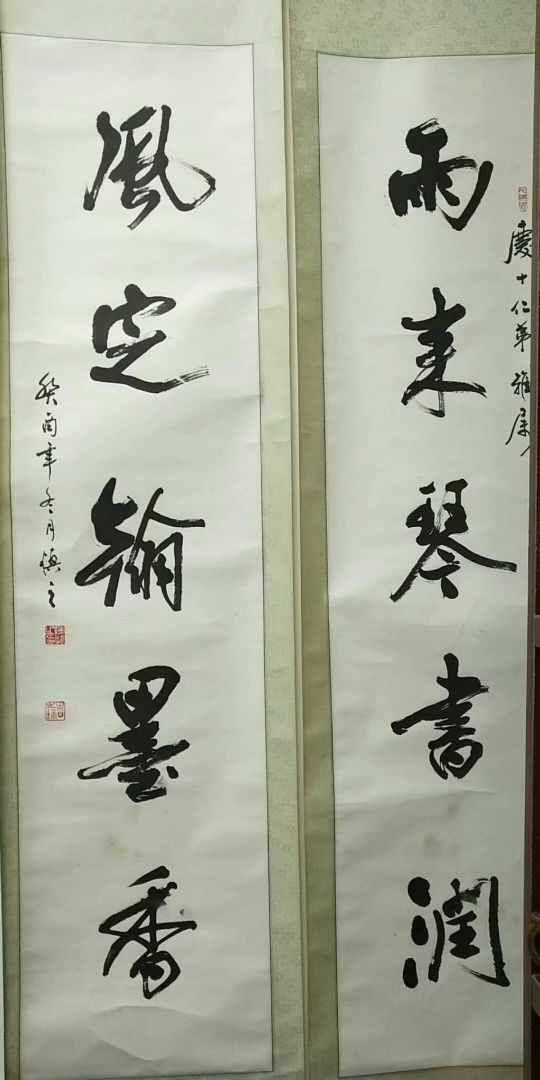 慶十仁弟雅屬
雨來琴書潤
風定翰墨香
癸酉年冬月慎之